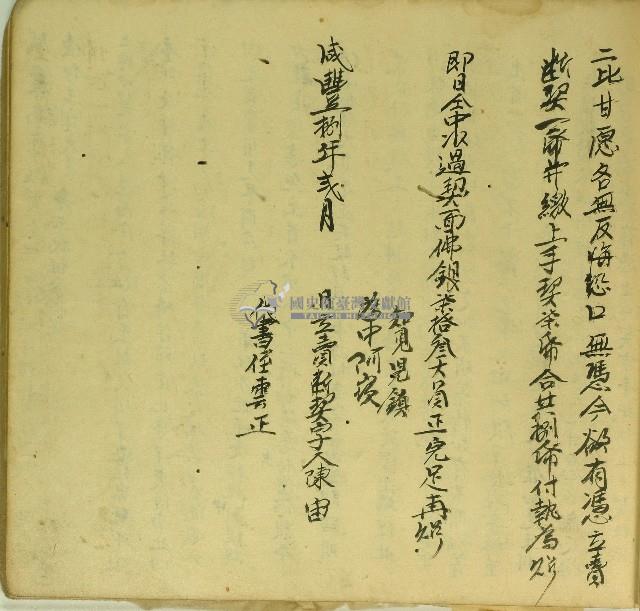 二比甘愿各無反悔恐口無憑今欲有憑立賣
断契一帋并繳上手契柒帋合共捌帋付執為炤
即日仝中收過契面佛銀柒拾叁大員正完足再炤
覓兄鎮
為中阿
咸豐捌年弍月 日立賣断契字人陳宙
代書侄雲正
國史館臺灣文獻館
TAIWAN HISTORICA